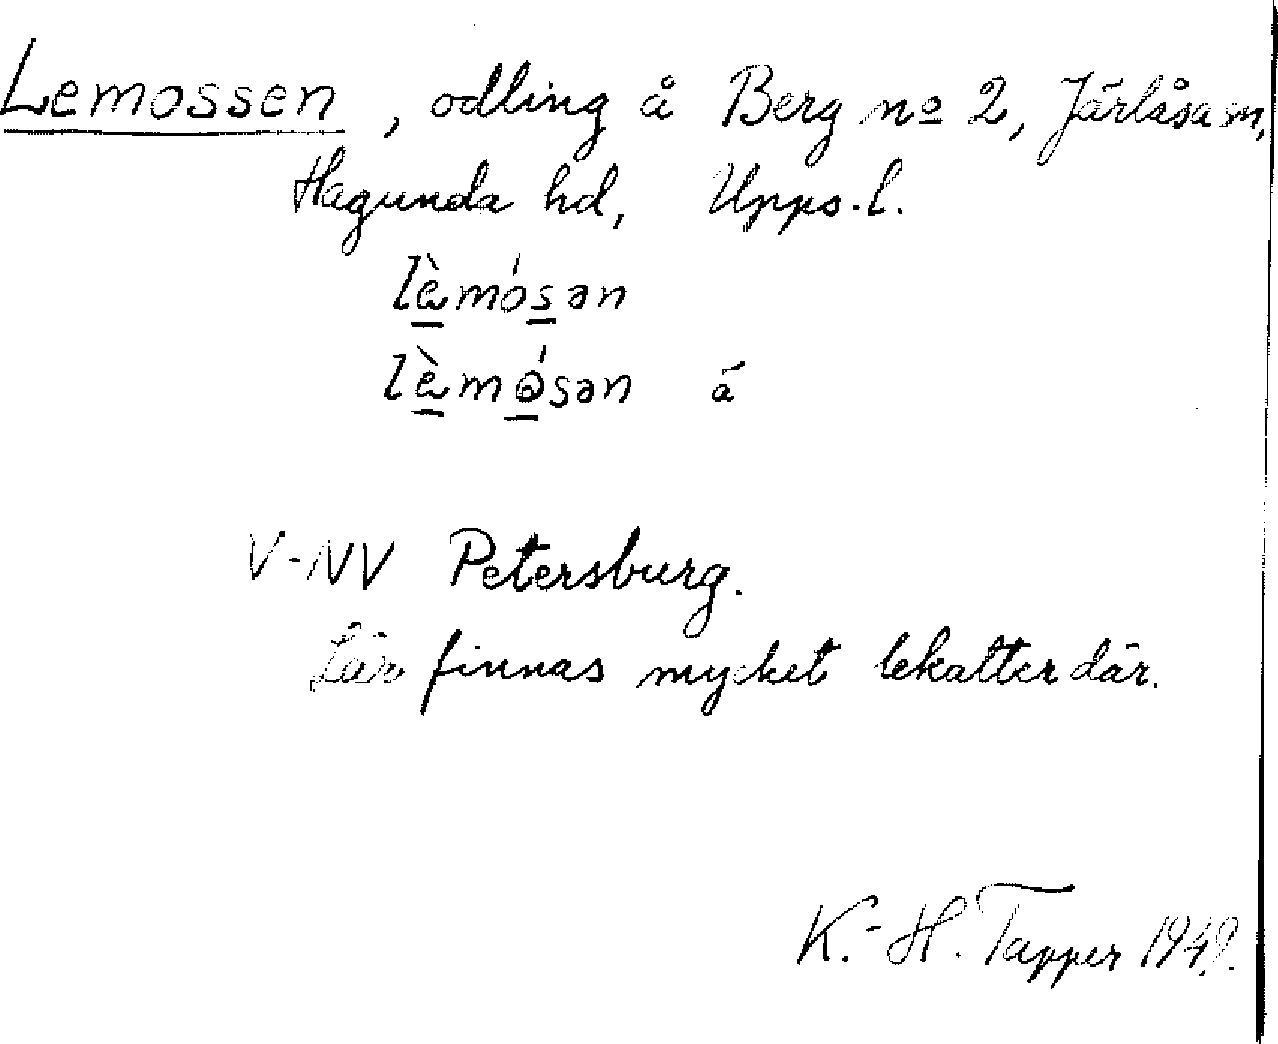 Lemossen, odling å Berg nº 2, Järlåsa sn,
Hagunda hd, Upps. l.
lèmósən
lèmósən á
V-NV Petersburg.
Lär finnas mycket lekatter där.
K.-H. Tapper 1949.